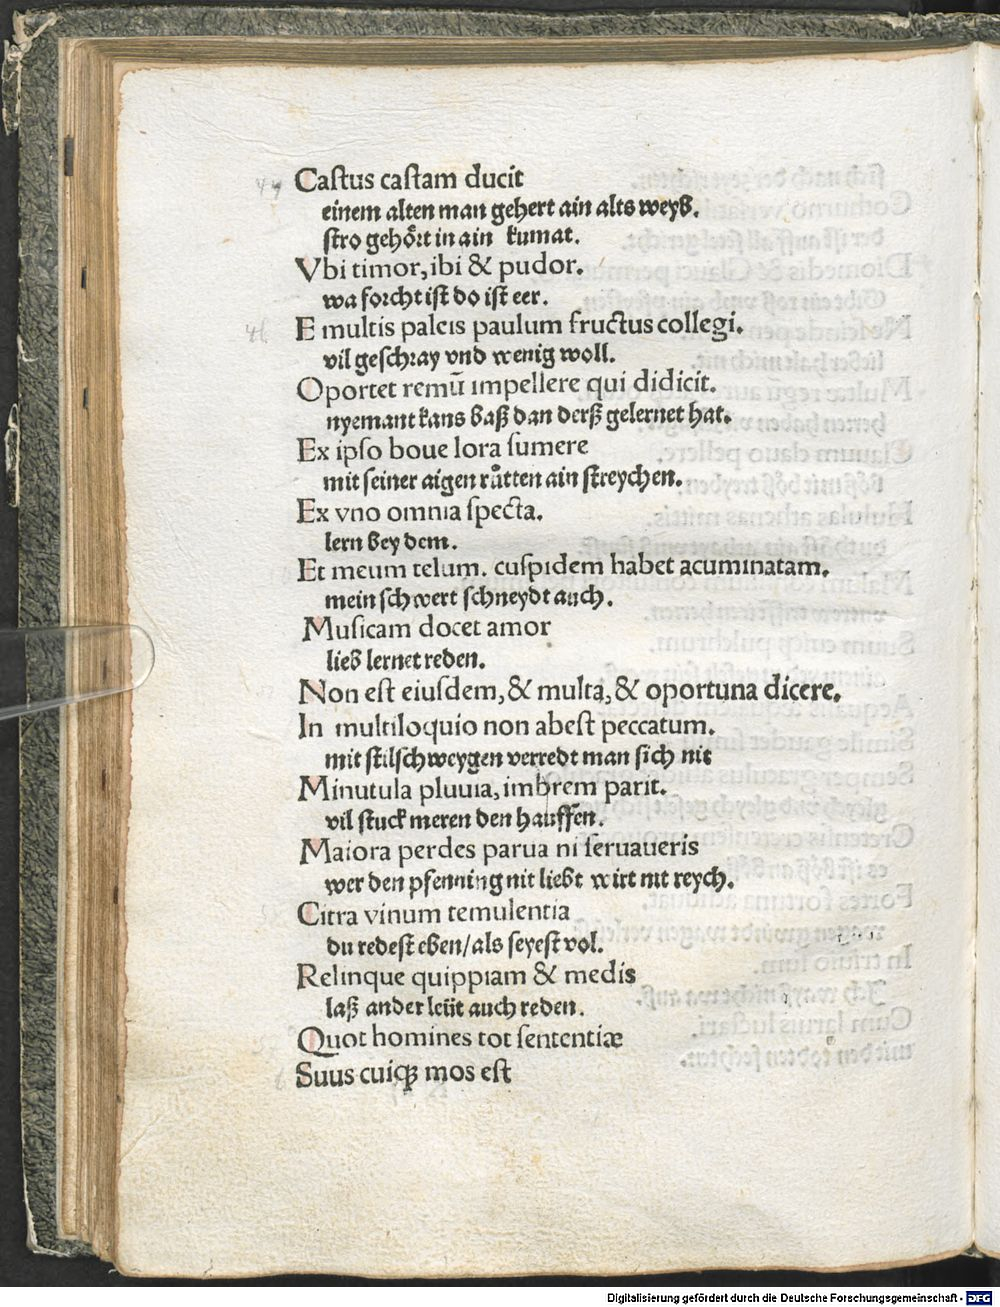 44 Caſtus caſtam ducit
einem alten man gehert ain alts weyß.
ſtro gehoͤrt in ain kumat.
Vbi timor, ibi & pudor.
wa forcht iſt do iſt eer.
46 E multis paleis paulum fructus collegi.
vil geſchray vnd wenig woll.
Oportet remū impellere qui didicit.
nyemant kans baß dan derß gelernet hat.
Ex ipſo boue lora ſumere
mit ſeiner aigen růtten ain ſtreychen.
Ex vno omnia ſpecta.
lern bey dem.
Et meum telum. cuſpidem habet acuminatam.
mein ſchwert ſchneydt auch.
Muſicam docet amor
lieb lernet reden.
Non eſt eiuſdem, & multa, & oportuna dicere.
In multiloquio non abeſt peccatum.
mit ſtilſchweygen verredt man ſich nit
Minutula pluuia, imbrem parit.
vil ſtuck meren den hauffen.
Maiora perdes parua ni ſeruaueris
wer den pfenning nit liebt wirt nit reych.
Citra vinum temulentia
du redeſt eben/ als ſeyeſt vol.
Relinque quippiam & medis
laß ander leüt auch reden.
Quot homines tot ſententiæ
Suus cuiqꝫ mos eſt
Digitalisierung gefördert durch die Deutsche Forschungsgemeinschaft - DFG